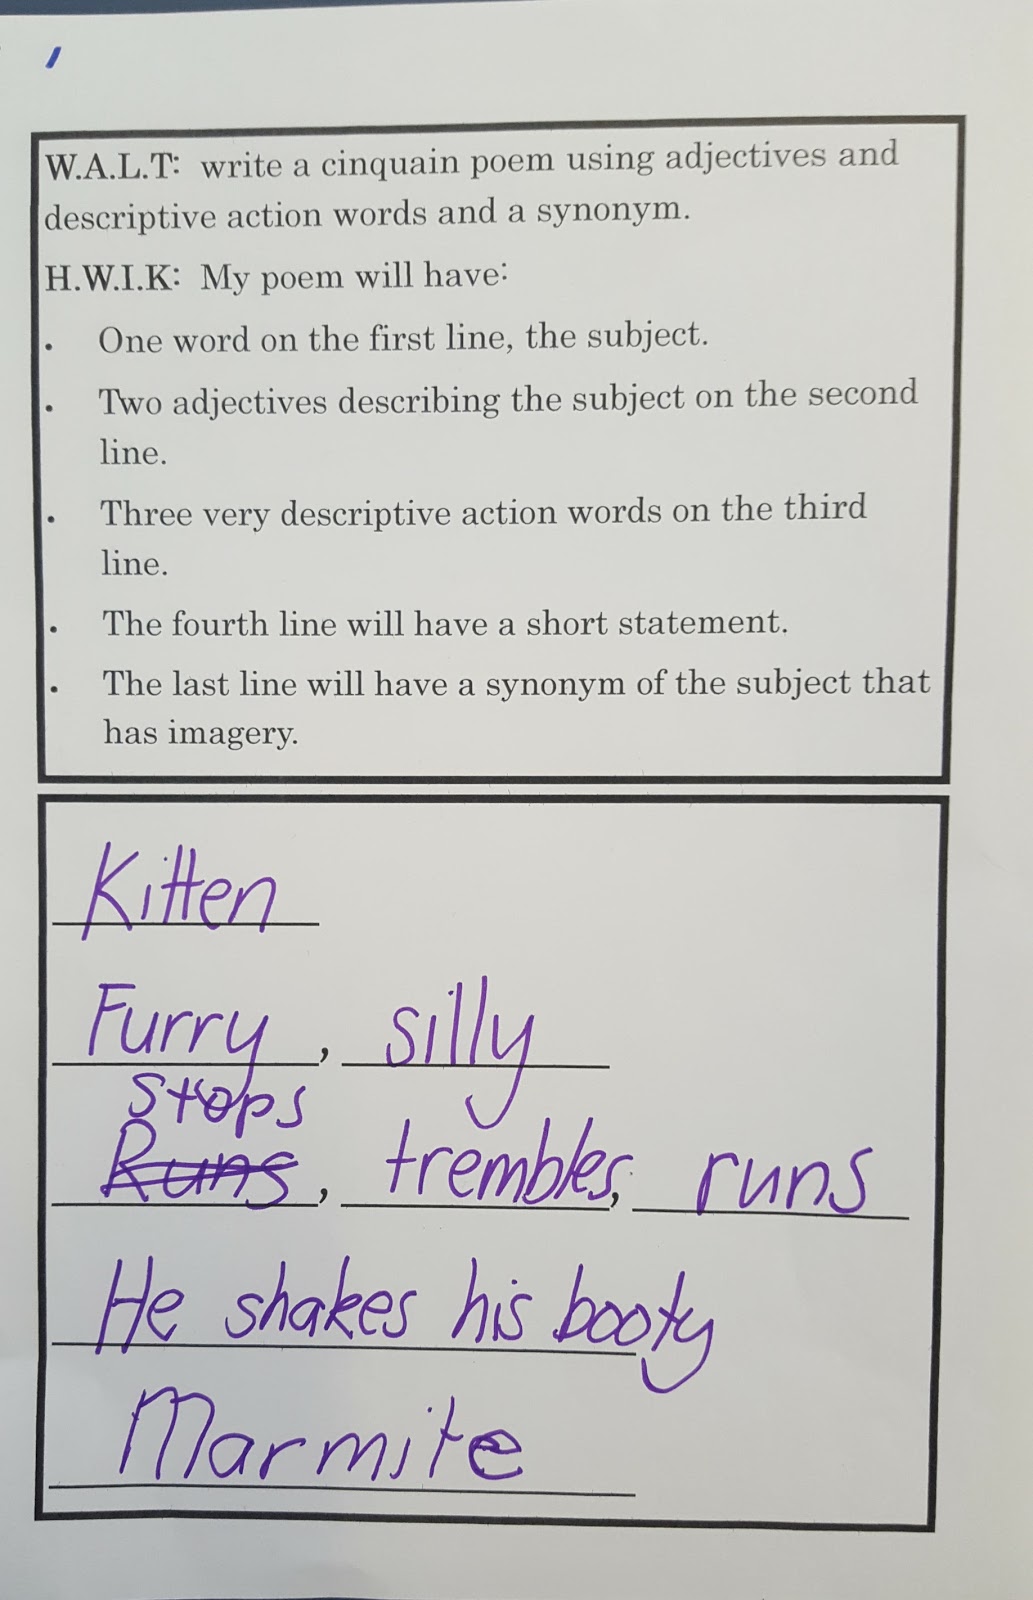 W.A.L.T: write a cinquain poem using adjectives and
descriptive action words and a synonym.
H.W.I.K: My poem will have:
• One word on the first line, the subject.
• Two adjectives describing the subject on the second
line.
• Three very descriptive action words on the third
line.
• The fourth line will have a short statement.
• The last line will have a synonym of the subject that
has imagery.
Kitten
Furry, silly
stops
Runs, trembles, runs
He shakes his booty
Marmite